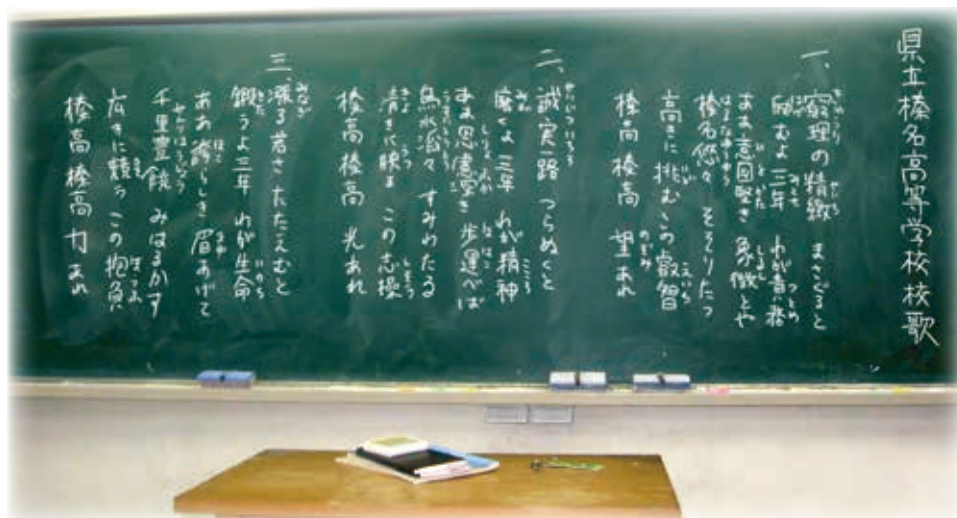 県立榛名高等学校校歌
一、
窮理の精緻 まさぐると
励むよ三年 わが責務
ああ意図堅き 象徴とや
榛名悠々 そそりたつ
高きに 挑むこの叡智
榛高榛高 望あれ
二、
誠実一路 つらぬくと
磨くよ三年 われが精神
まま思慮深き 歩運べば
烏水滔々 すみわたる
青きに映ゆ この志操
榛高榛高 光あれ
三、
漲る若さ たたえむと
鍛うよ三年 わが生命
ああ誇らしき 眉あげて
千里豊饒 みはるかす
広きに競う この抱負
榛高榛高 力あれ